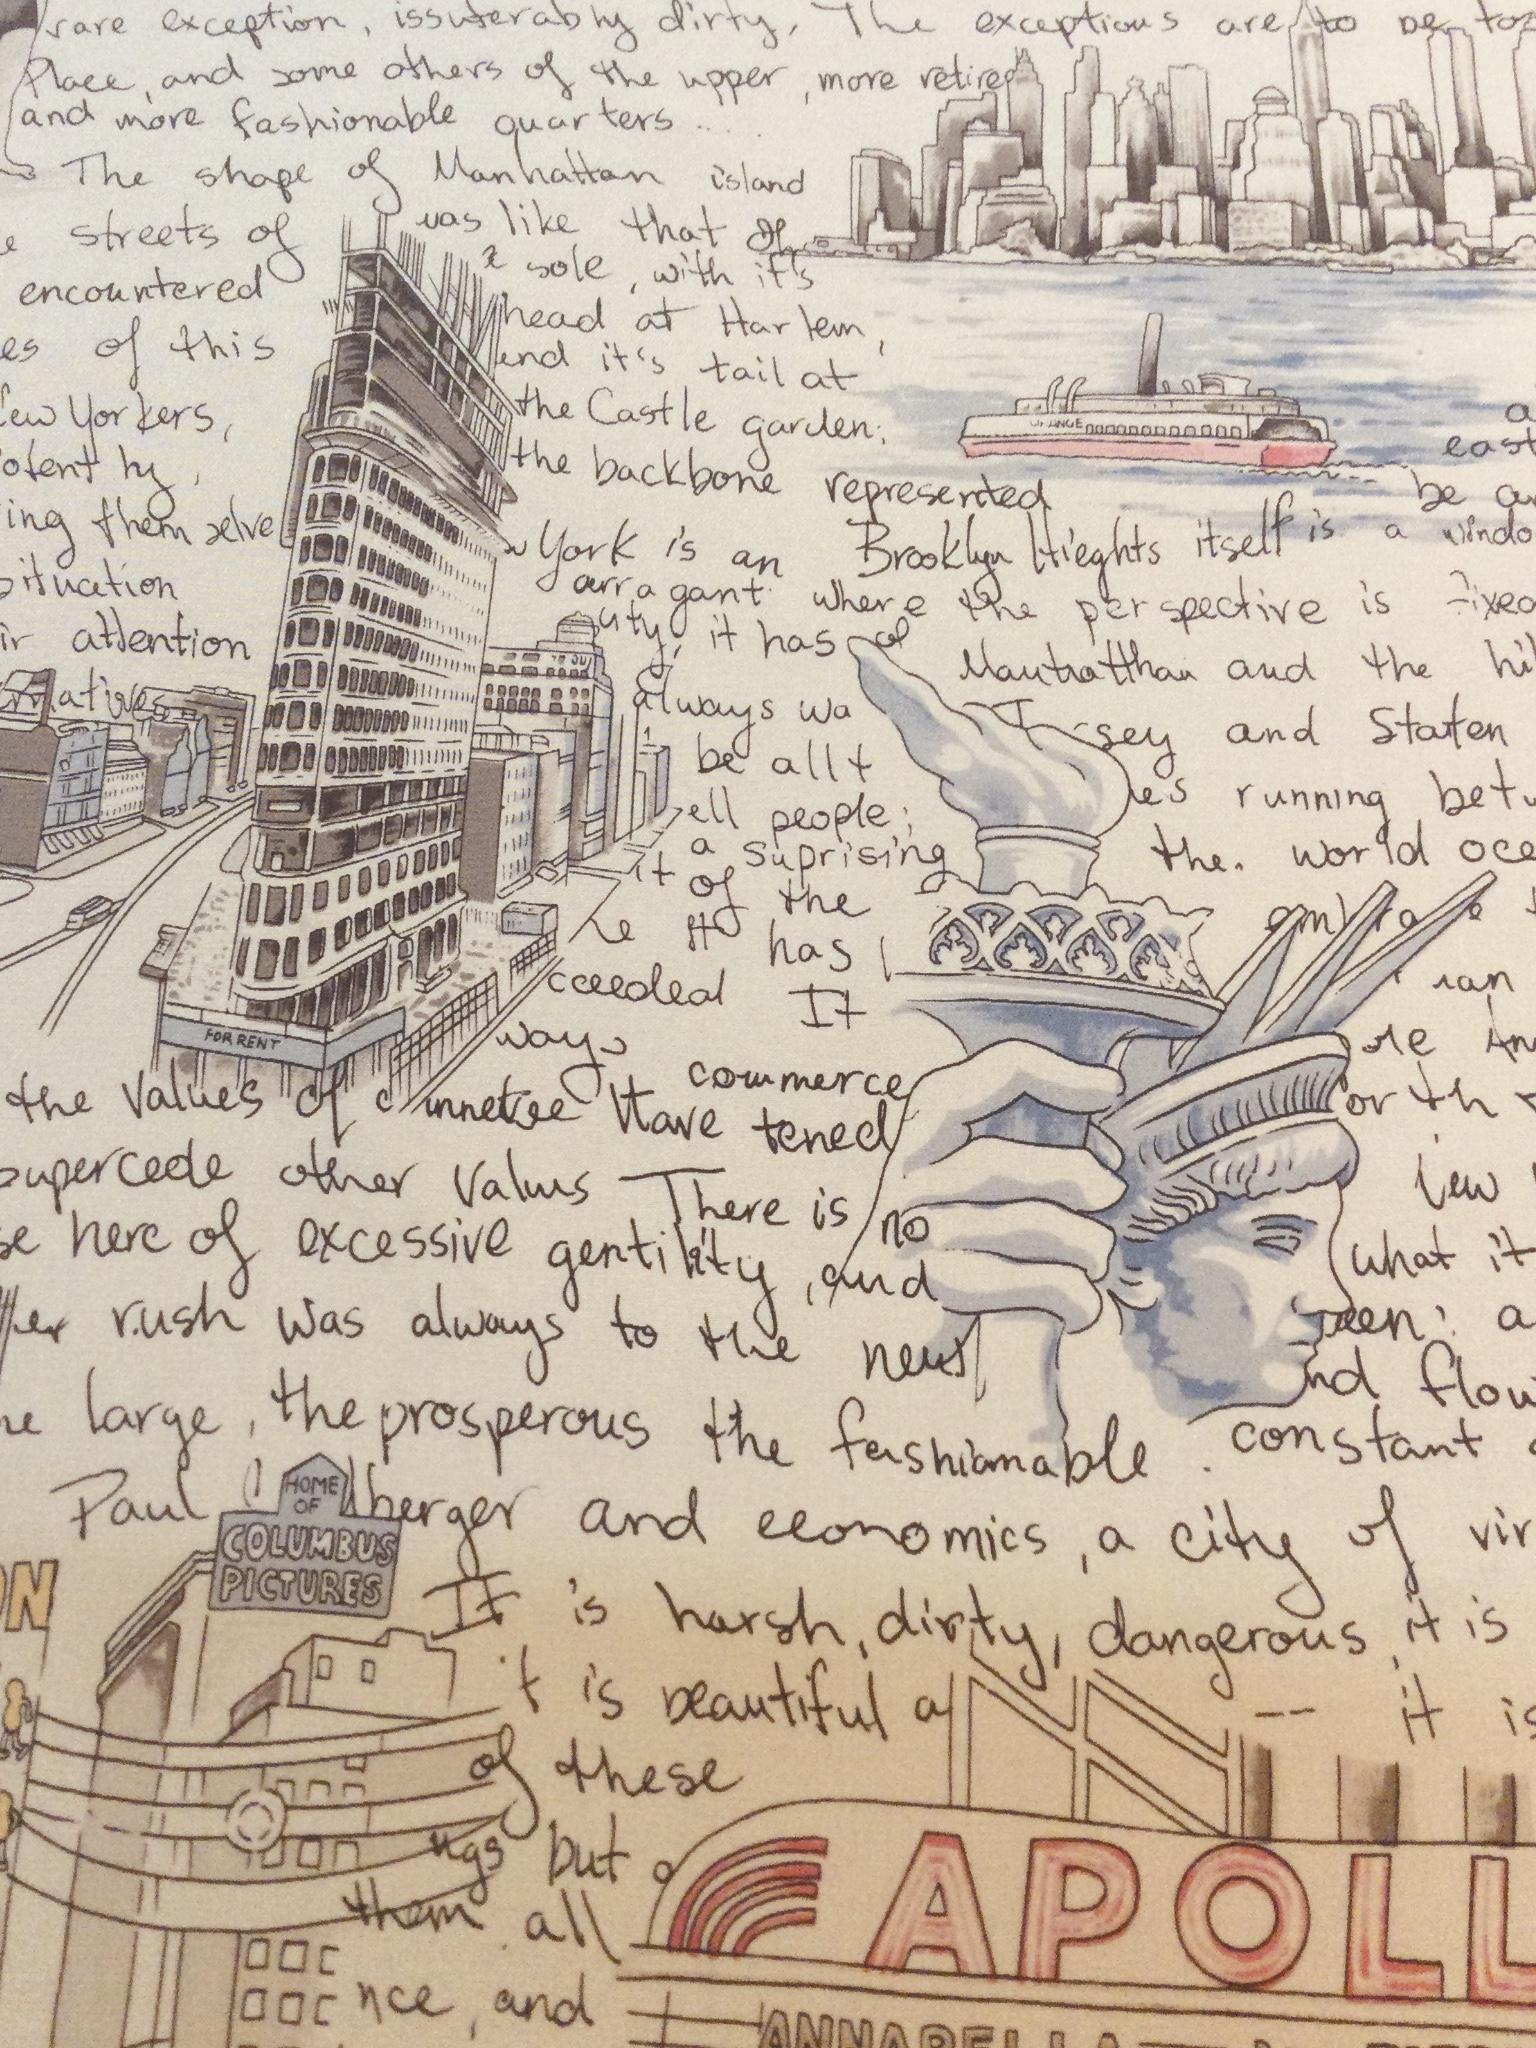 rare exception, issuterably dirty, The exceptions are to be
Place, and some others of the upper, more retire
and more fashionable quarters...
The shape of Manhattan island
streets of
was like that of
sole, with it's
encountered
head at Harlem,
es of this
end it's tail at
ew Yorkers,
the Castle garden;
otently,
the backbone represented
ing themselve
situation
ir attention
ORANGE
a
east
be
York is an
arragant
it has
always wa
be all t
ell people;
a suprising
it of the
He it has
cceeded It
ways
commerce
Brooklyn Hieghts itself is a windo
where the perspective is Fixed
and the hil
sey and Staten
es running betw
the. world oce
FOR RENT
the values of Have tened
supercede other values There is no
se here of excessive gentility, and
rush was always to the new
he large, the prosperous the fashianable.
or th
ew
what it
een: a
nd flow
constant
Paul berger and economics, a city of vir
HOME
OF
COLUMBUS
PICTURES
ON
It is harsh, dirty, dangerous, it is
t is beautiful a -- it is
of these
ngs but
them all
nce, and
APOLL
ANNABELLA